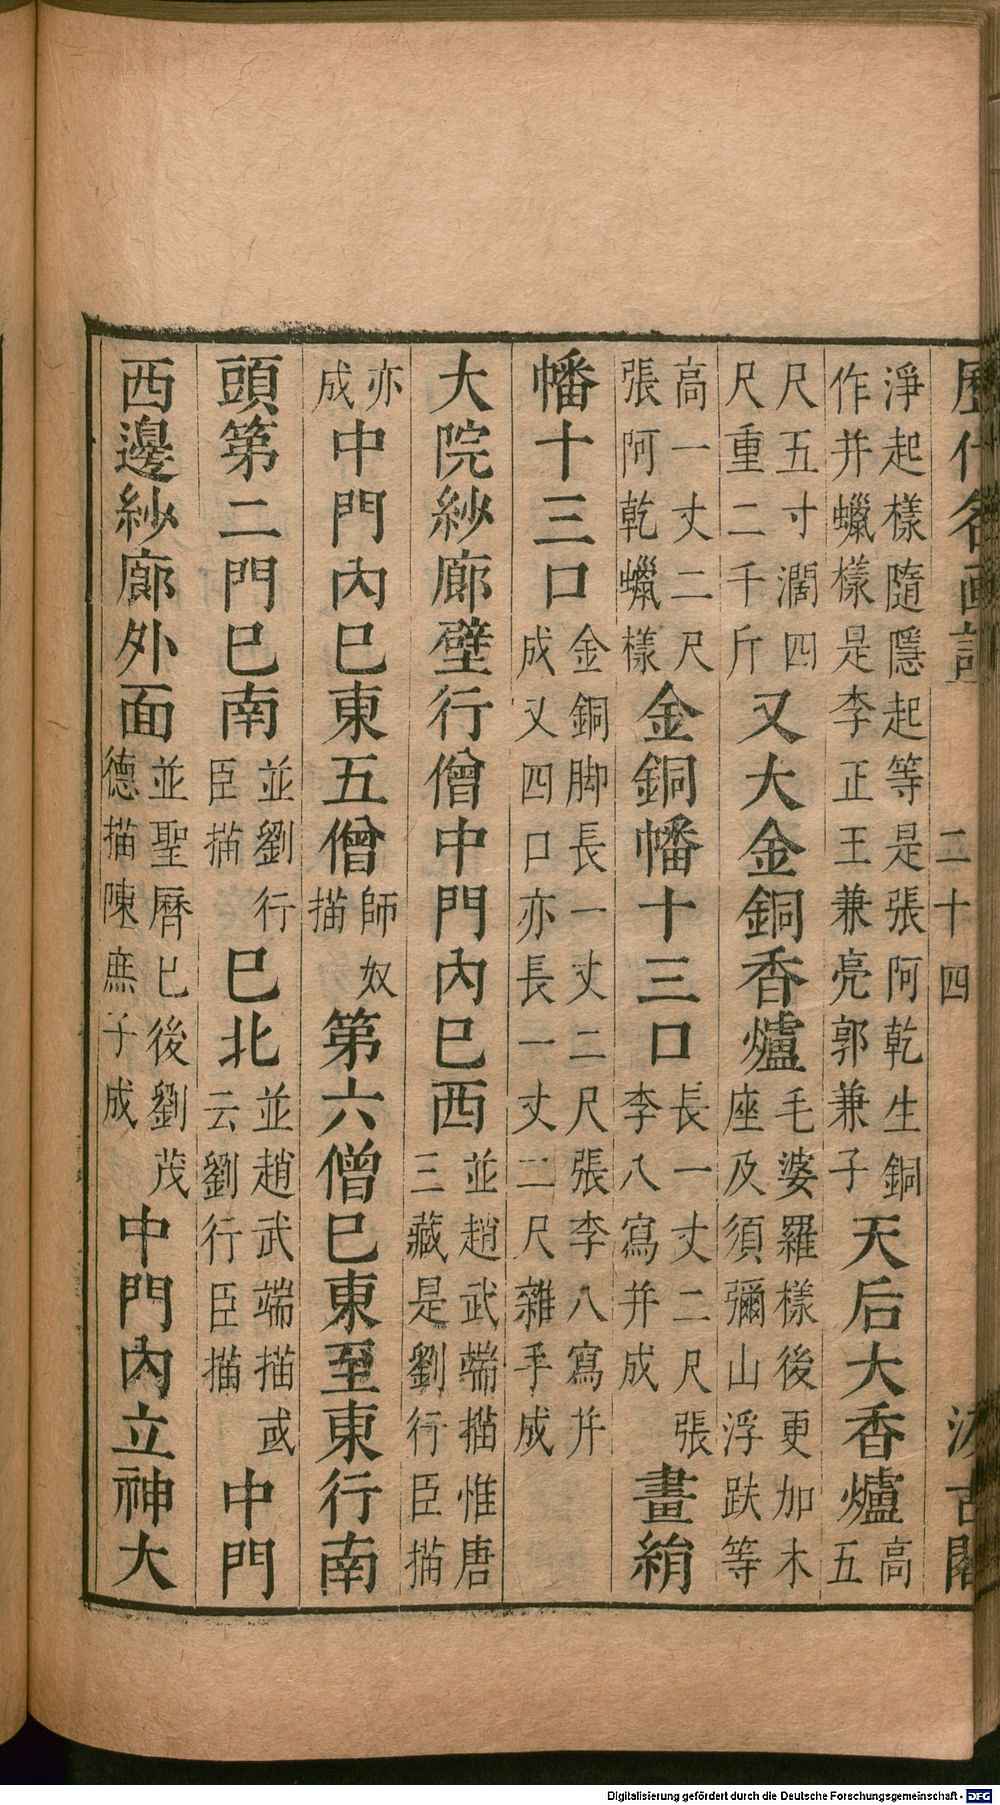 歷代名画記 二十四 汲古閣
淨起樣隨隱起等是張阿乾生銅
作并蠟樣是李正王兼亮郭兼子
天后大香爐
高
五
尺五寸濶四
尺重二千斤
又大金銅香爐
毛婆羅樣後更加木
座及須彌山浮趺等
高一丈二尺
張阿乾蠟樣
金銅幡十三口
長一丈二尺張
李八寫并成
畫絹
幡十三口
金銅脚長一丈二尺張李八寫并
成又四口亦長一丈二尺雜手成
大院紗廊壁行僧中門內巳西
並趙武端描惟唐
三藏是劉行臣描
亦
成
中門內巳東五僧
師奴
描
第六僧巳東至東行南
頭第二門巳南
並劉行
臣描
巳北
並趙武端描或
云劉行臣描
中門
西邊紗廊外面
並聖曆已後劉茂
德描陳庶子成
中門內立神大
Digitalisierung gefördert durch die Deutsche Forschungsgemeinschaft - DFG